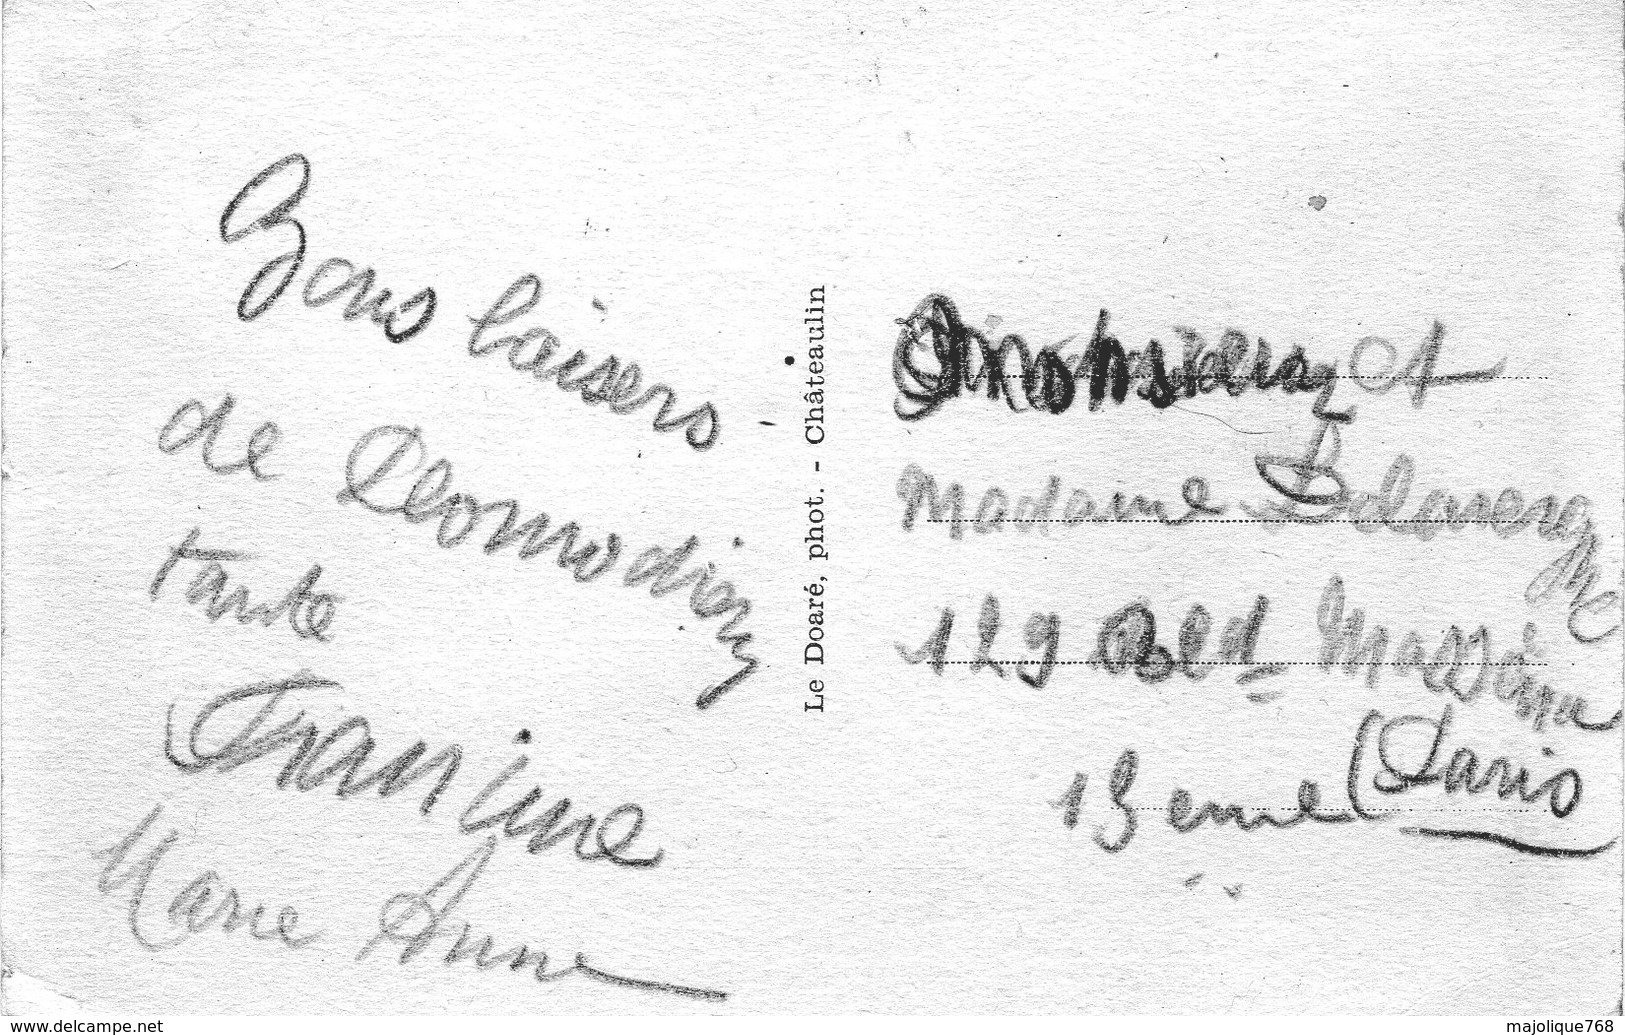 Bons baisers
de Ploumodiern
tante
Francine
Marie Anne
Le Doaré, phot. - Châteaulin
Monsieur et
Madame
129 Bld Masséna
13eme (Paris
www.delcampe.net
majolique768